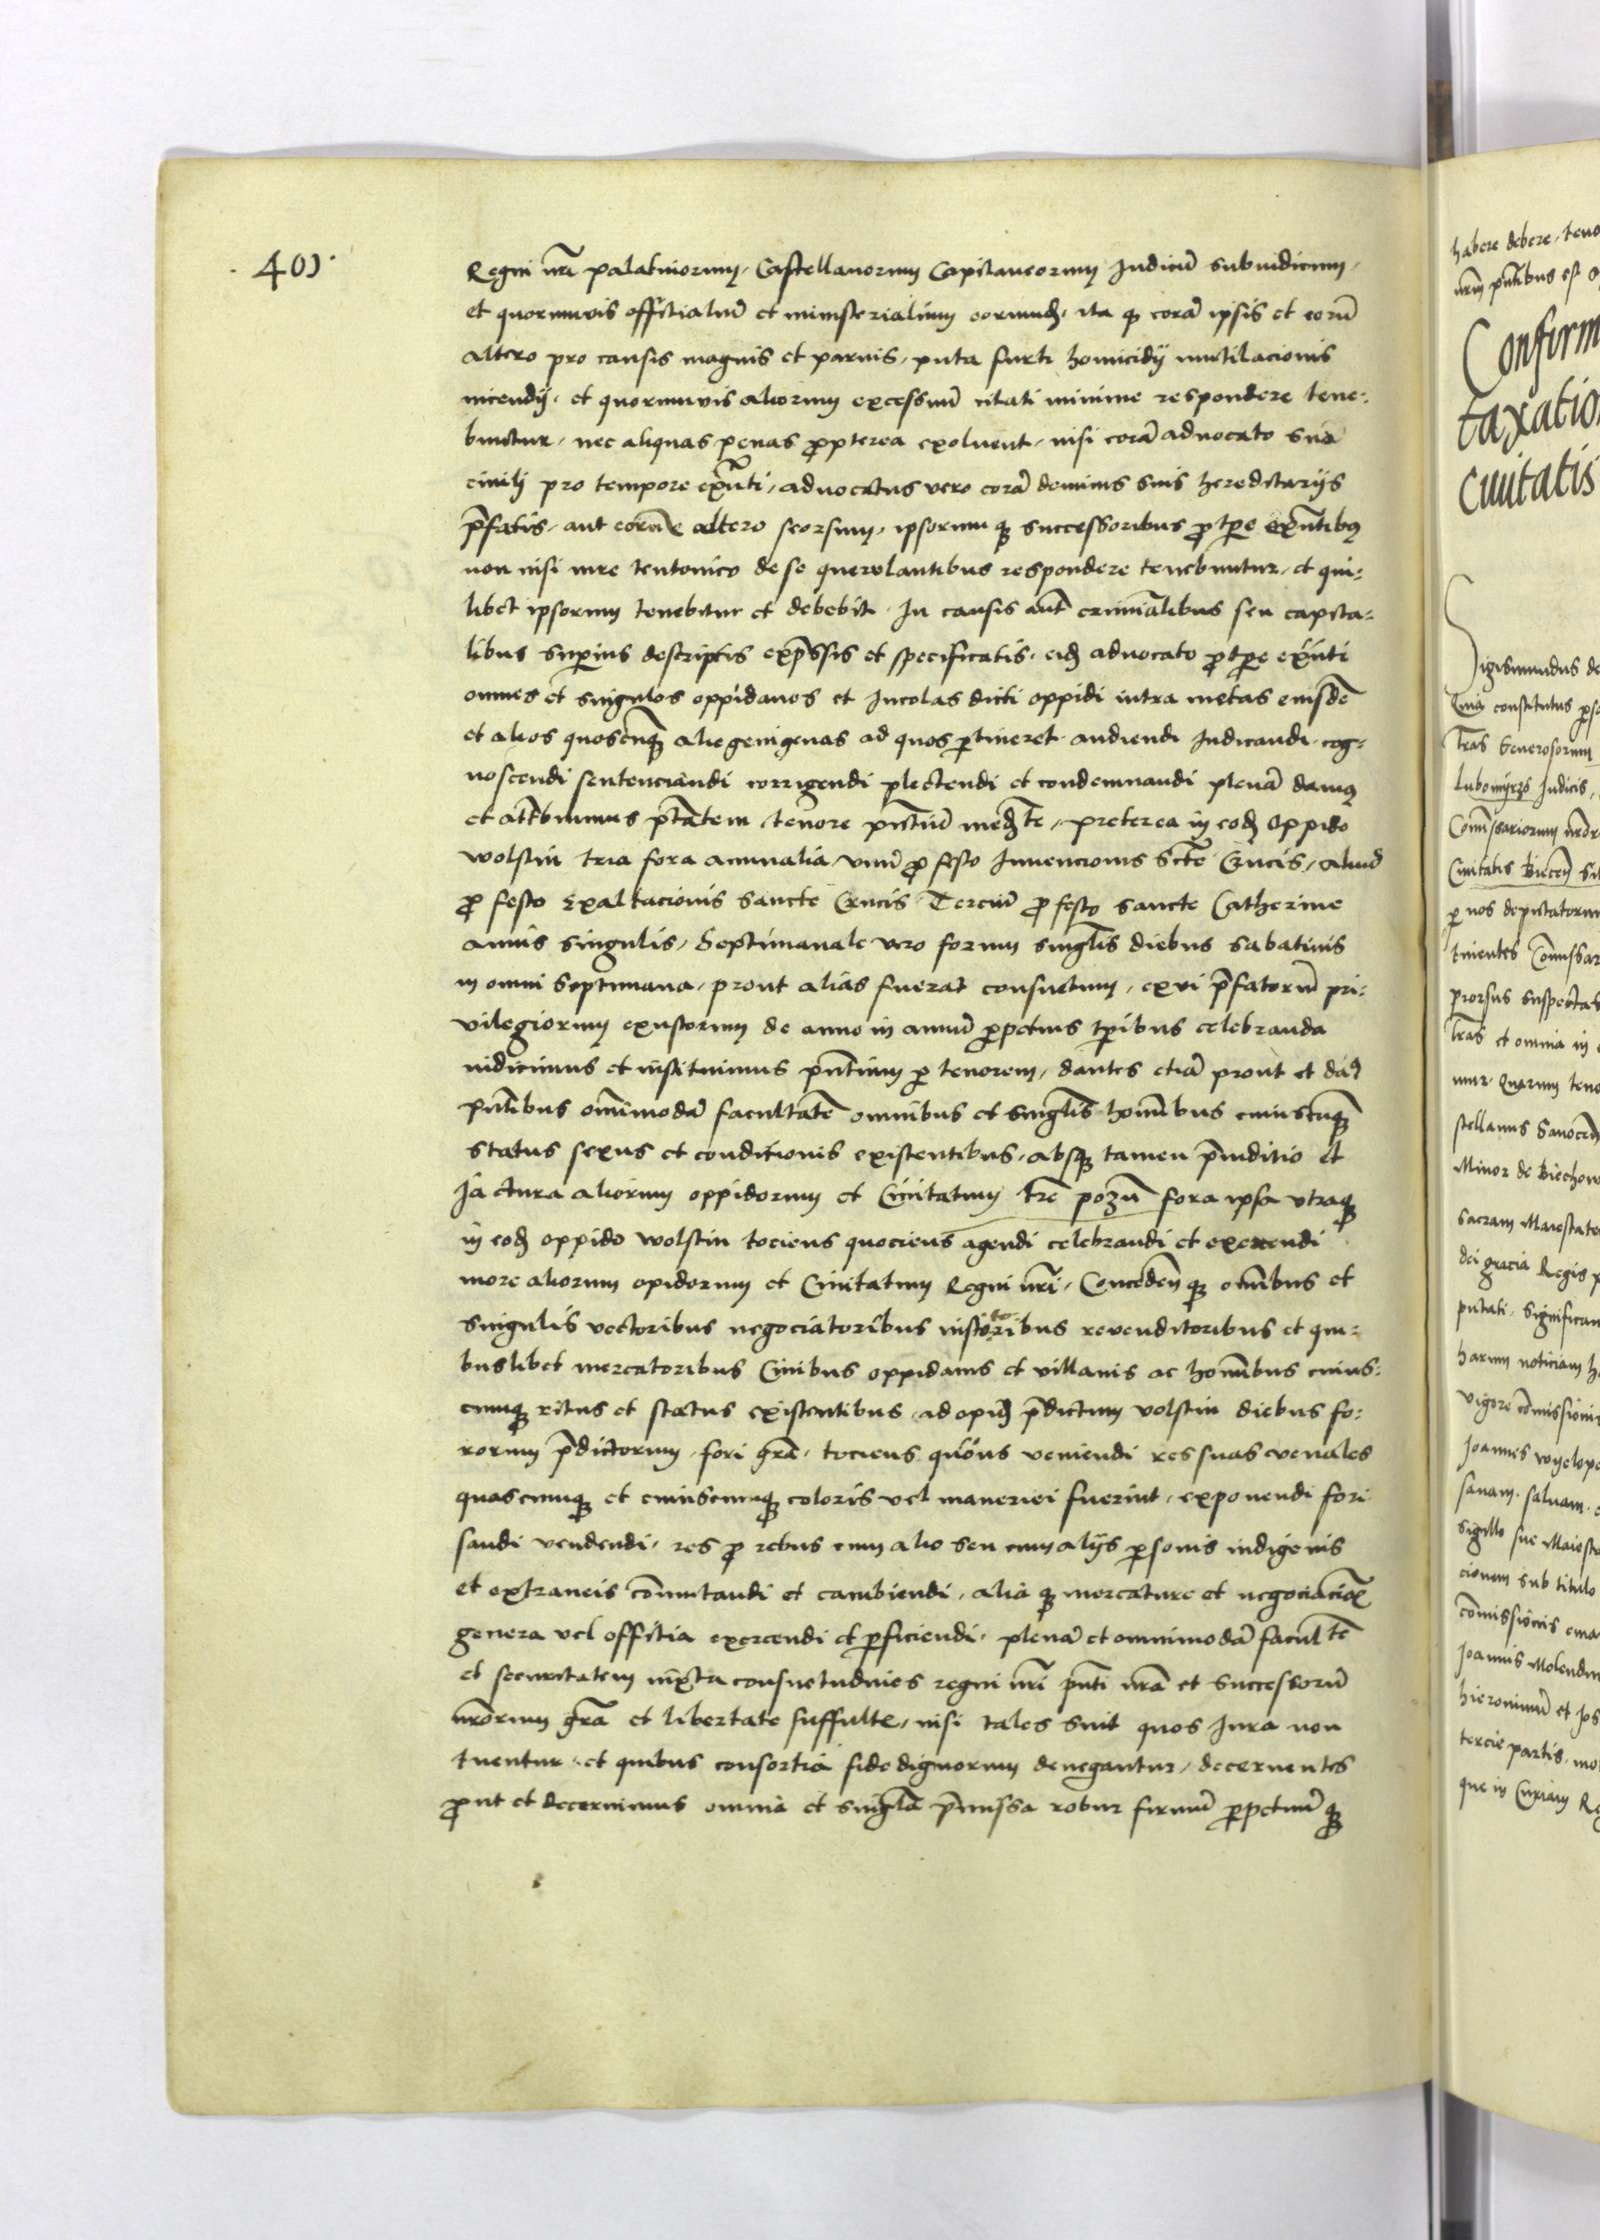 · 401 ·
Regni nr̄i palatinorum, Castellanorum Capitaneorum Judicū subiudicum,
et quorumvis officialiū et ministerialium eorumdē, ita q̄ corā ipsis et eorū
altero pro causis magnis et parvis, puta furti homicidij mutilacionis
incendij, et quorumvis aliorum excessuū citati minime respondere tene-
buntur, nec aliquas penas ꝓpterea exolvent, nisi corā advocato suo
civili pro tempore exn̄ti, advocatus vero corā dominis suis hereditarijs
p̄fatis, aut eorū altero seorsum, ipsorumq̄ successoribus ꝓ tp̄re exn̄tibꝰ
non nisi iure teutonico de se querelantibus respondere tenebuntur, et qui-
libet ipsorum tenebitur et debebit. In causis aūt criminalibus seu capita-
libus superius descriptis exp̄ssis et specificatis, eidē advocato ꝓ tp̄re exn̄ti
omnes et singulos oppidanos et Incolas dicti oppidi intra metas eiusdē
et alios quoscūq̄ aliegenigenas ad quos ꝑtineret audiendi Iudicandi cog-
noscendi sentenciandi corrigendi plectendi et condemnandi plenā damꝰ
et attribuimus p̄tātem, tenore pn̄tiū med̄te, preterea in eodē Oppido
wolstin tria fora annualia, vnū ꝓ festo Invencionis Sctē Crucis, aliud
ꝓ festo Exaltacionis Sancte Crucis Terciū ꝓ festo Sancte Catherine
annis singulis, Septimanale vero forum singl̄is diebus sabativis
in omni Septimana, prout alias fuerat consuetum, ex vi p̄fatorū pri-
vilegiorum exustorum de anno in annū ꝑpetuis tp̄ribus celebranda
indicimus et instituimus pn̄tium ꝑ tenorem, dantes etiā prout et damꝰ
pn̄tibus om̄imodā facultatē omnibus et singl̄is hom̄ibus cuiuscūq̄
status sexus et conditionis existentibus, absq̄ tamen p̄iuditio et
Iactura aliorum oppidorum et Civitatum tr̄e pozn̄ fora ipsa vtraq̄
in eodē oppido wolstin tociens quociens agendi celebrandi et exercendi
more aliorum opidorum et Civitatum Regni nr̄i, Conceden̄q̄ om̄ibus et
Singulis vectoribus negociatoribus institoribus revenditoribus et qui-
buslibet mercatoribus Civibus oppidanis et villanis ac hom̄ibus cuius-
cumq̄ ritus et status existentibus, ad opidū p̄dictum volstin diebus fo-
rorum p̄dictorum, fori gr̄a, tociens quōns veniendi res suas venales
quascumq̄ et cuiuscumq̄ coloris vel maneriei fuerint, exponendi fori
sandi vendendi, res ꝓ rebus cum alio seu cum alijs ꝑsonis indigenis
et extraneis cōmutandi et cambiendi, aliaq̄ mercature et negociaciōꝝ
genera vel offitia exercendi et ꝑficiendi, plenā et omnimodā facultē
et securitatem iuxta consuetudines regni nr̄i pn̄ti nr̄a et successorū
nr̄orum gr̄a et libertate suffulte, nisi tales sint quos Iura non
tuentur, et quibus consortia fidedignorum denegantur, decernentes
ꝓut et decernimus omnia et singl̄a p̄missa robur firmū ꝑpetuūq̄
habere debere, teno
Confirm
taxatio
civitatis
Sigismundus de
Quia constitutus
Lubomyrzo Judicis,
Civitatis
prorsus suspectas
Minor de Biechow
Sacram Maiestate
dei gracia Regis
putati, Significan
harum noticiam
vigore cōmissionis
sanam, salvam
sigillo sue Maiesta
cionem sub titulo
cōmissionis
Joannis Molendin
tercie partis,
que in Curiam